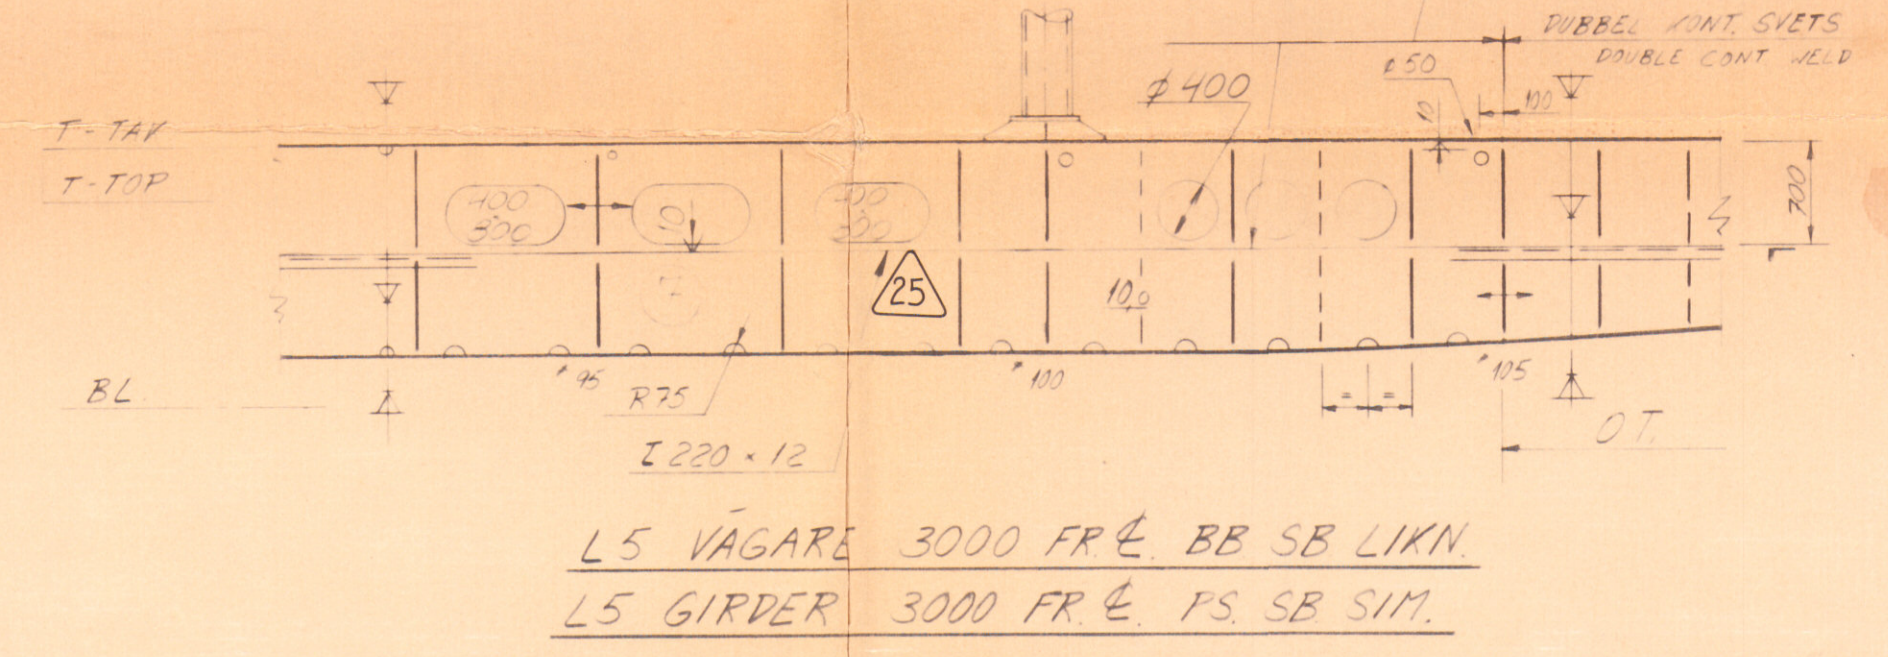 DUBBEL KONT. SVETS
DOUBLE CONT WELD
ø50
ø400
10
100
T-TAK
T-TOP
400
300
10
400
300
700
25
10,0
95
100
105
BL.
R75
= =
O T.
I 220 × 12
L5 VÄGARE 3000 FR. ℄. BB SB LIKN.
L5 GIRDER 3000 FR. ℄. PS. SB SIM.